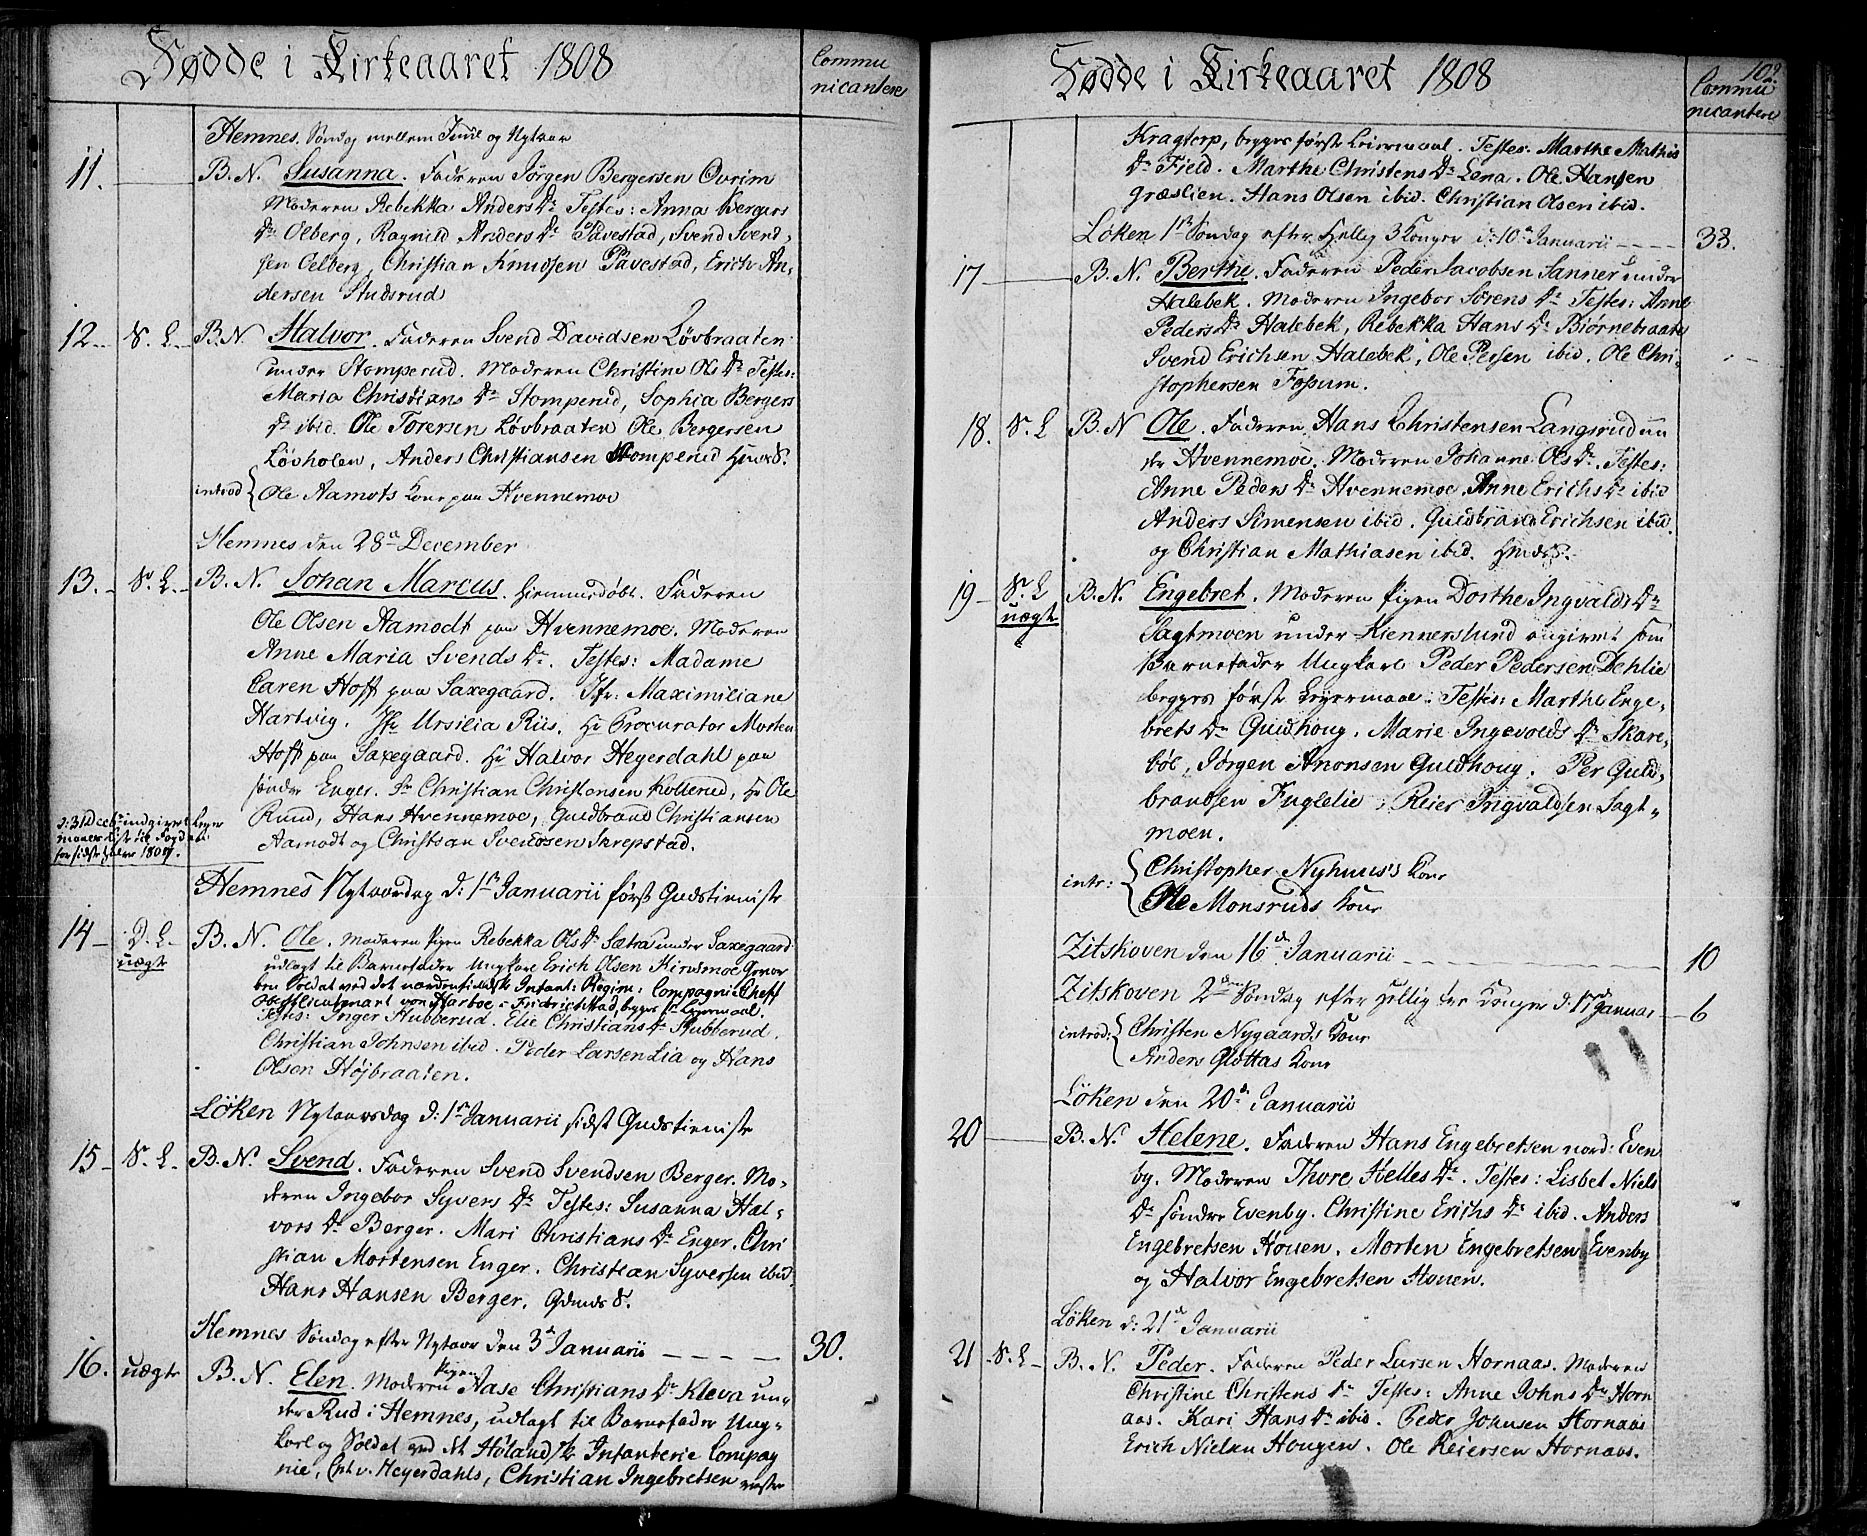 Fødde i Kirkeaaret 1808
Commu
nicantere
Hemnes. Søndag mellem Juul og Nytaar
11. B. N. Susanna. Faderen Jørgen Bergersen Ovrim
Moderen Rebekka Anders Dr Testes: Anna Bergers
Dr Olberg, Ragnild Anders Dr Pavestad, Svend Svend-
sen Oelberg, Christian Knudsen Pavestad, Erich An-
dersen Studsrud
12. S. L. B. N Halvor. Faderen Svend Davidsen Løvbraaten
under Stomperud. Moderen Christine Ols Dr Testes:
Maria Christians Dr Stomperud, Sophia Bergers
Dr ibid. Ole Toresen Løvbraaten Ole Bergersen
Løvholen, Anders Christiansen Stomperud
introd { Ole Aamots Kone paa Hvennemoe
Hemnes den 28de December
13. S. L. B. N. Johan Marcus. Hiemmedøbt. Faderen
Ole Olsen Aamodt paa Hvennemoe. Moderen
Anne Maria Svends Dr. Testes: Madame
Caren Hoff paa Saxegaard. Jfr: Maximiliane
Hartvig. Jfr Ursilia Riis. Hr Procurator Morten
Hoff paa Saxegaard. Hr Halvor Hegerdahl paa
søndre Enger. Sr Christian Christensen Kollerud, Hr Ole
Rund, Hans Hvennemoe, Guldbrand Christiansen
Aamodt og Christian Svendsen Skrepstad.
d: 31 Dcebr indgivet
til Fogden
for sidste halve 1807.
Hemnes Nytaarsdag d: 1ste Januarii først Gudstieniste
14. D. L. uægte B. N. Ole. Moderen Pigen Rebekka Ols Dr Sætra under Saxegaard
udlagt til Barnefader Ungkarl Erich Olsen Kinsmoe
ben Soldat ved det nordenfieldske Infant: Regim: Compagnie Cheff
Oberstlieutenant von Harboe i Fridrichstad, begges 1ste Leiermaal.
Testes: Inger Hubberud. Elie Christians Dr Hubberud.
Christian Johnsen ibid. Peder Larsen Lia og Hans
Olsen Højbraaten.
Løken Nytaarsdag d: 1ste Januarii sidst Gudstieniste
15. S. L. B. N. Svend. Faderen Svend Svendsen Berger. Mo-
deren Ingebor Syvers Dr Testes: Susanna Hal-
vors Dr Berger. Mari Christians Dr Enger. Chri
stian Mortensen Enger. Christian Syversen ibid,
Hans Hansen Berger.
Hemnes Søndag efter Nytaar den 3de Januarii 30.
16. uægte B. N. Elen. Moderen Pigen Aase Christians Dr Kleva un-
der Rud i Hemnes, udlagt til Barnefader Ung-
karl og Soldat ved det Hølandske Infanterie Compag
nie, Cpt. v. Heyerdahls, Christian Ingebretsen
Fødde i Kirkeaaret 1808
102.
Commu
nicantere
Kragtorp, begges første Leiermaal. Testes: Marthe Mathis
Dr Field. Marthe Christens Dr Lena. Ole Hansen
Græslien. Hans Olsen ibid. Christian Olsen ibid.
Løken 1ste Søndag efter Hellig 3 Konger d: 10de Januarii 33.
17 B. N. Berthe. Faderen Peder Jacobsen Sanner under
Halebek. Moderen Ingebor Sørens Dr Testes: Anne
Peders Dr Halebek, Rebekka Hans Dr Biørnebraate
Svend Erichsen Halebek, Ole Persen ibid. Ole Chri-
stophersen Fossum.
18. S. L B. N Ole. Faderen Hans Christensen Langsrud un
der Hvennemoe. Moderen Johanne Ols Dr. Testes:
Anne Peders Dr Hvennemoe, Anne Erichs Dr ibid
Anders Simensen ibid. Guldbrand Erichsen ibid
og Christian Mathiasen ibid.
19. S. L uægte B. N. Engebret. Moderen Pigen Dorthe Ingvalds Dr
Sagtmoen under Kiennerslund angivet som
Barnefader Ungkarl Peder Pedersen Dehlie
begges første Leyermaal. Testes: Marthe Enge-
brets Dr Guldhoug. Marie Ingevolds Dr Skare-
bøl, Jørgen Aronsen Guldhoug. Per Guld-
brandsen Fuglelie, Reier Ingvaldsen Sagt-
moen.
intr: { Christopher Nyhuus's Kone
Ole Monsruds Kone
Zitskoven den 16de Januarii 10
Zitskoven 2den Søndag efter Hellig tre Konger d: 17de Januar 6
introd: { Christen Nygaards Kone
Anders Glottas Kone
Løken den 20de Januarii
20 B. N. Helene. Faderen Hans Engebretsen nord: Even
by. Moderen Thore Helles Dr. Testes: Lisbet Niels
Dr søndre Evenby. Christine Erichs Dr ibid. Anders
Engebretsen Houen. Morten Engebretsen Evenby
og Halvor Engebretsen Houen.
Løken d: 21de Januarii
21 S. L B. N. Peder. Faderen Peder Larsen Hornaas. Moderen
Christine Christens Dr Testes: Anne Johns Dr Horn
aas. Kari Hans Dr ibid. Peder Johnsen Hornaas
Erich Nielsen Hougen. Ole Reiersen Hornaas.